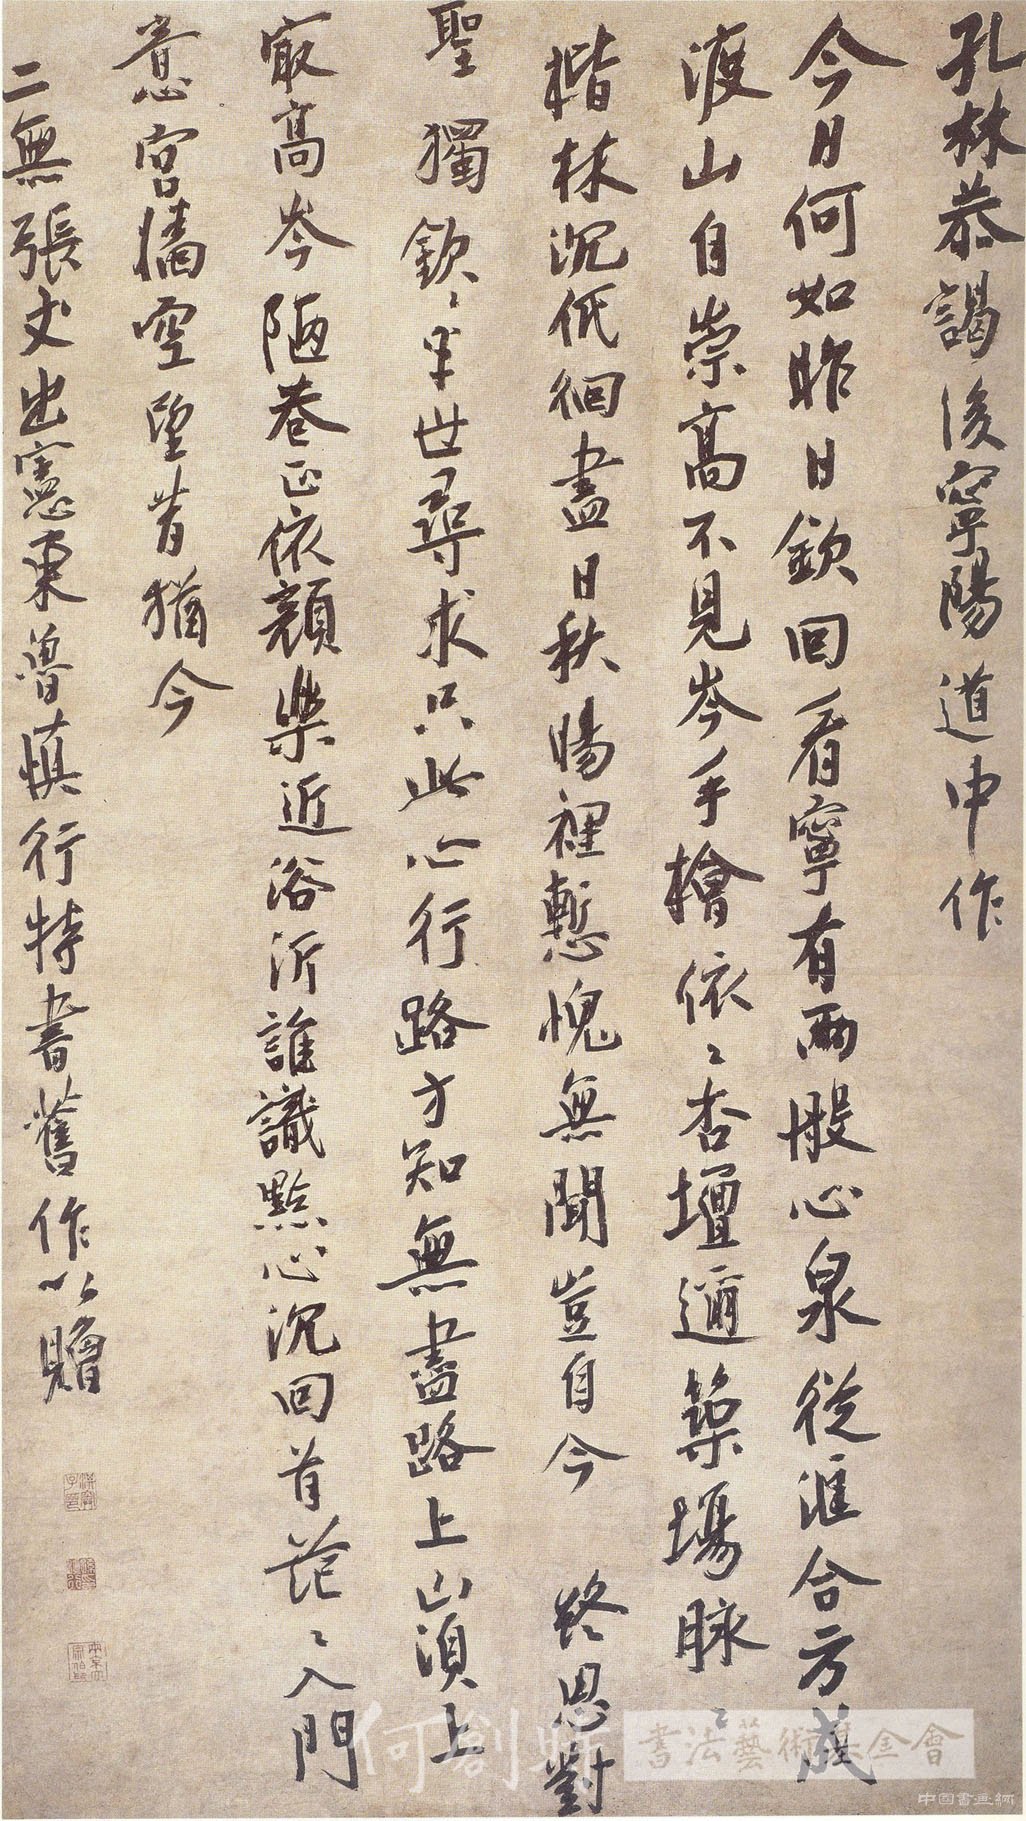 孔林恭謁後寧陽道中作
今日何如昨日欽回看寧有兩般心泉從滙合方成
渡山自崇高不見岑手檜依〻杏壇邇築場脉〻
楷林沉低徊盡日秋暘裡慙愧無聞豈自今 終思對
聖獨欽〻半世尋求只此心行路方知無盡路上山湏上
寂高岑陋巷正依顏樂近浴沂誰識點心沉回首茫〻入門
意宮牆空望昔猶今
二無張丈出憲東魯慎行特書舊作以贈
何創時
書法藝術基金會
中国書画網